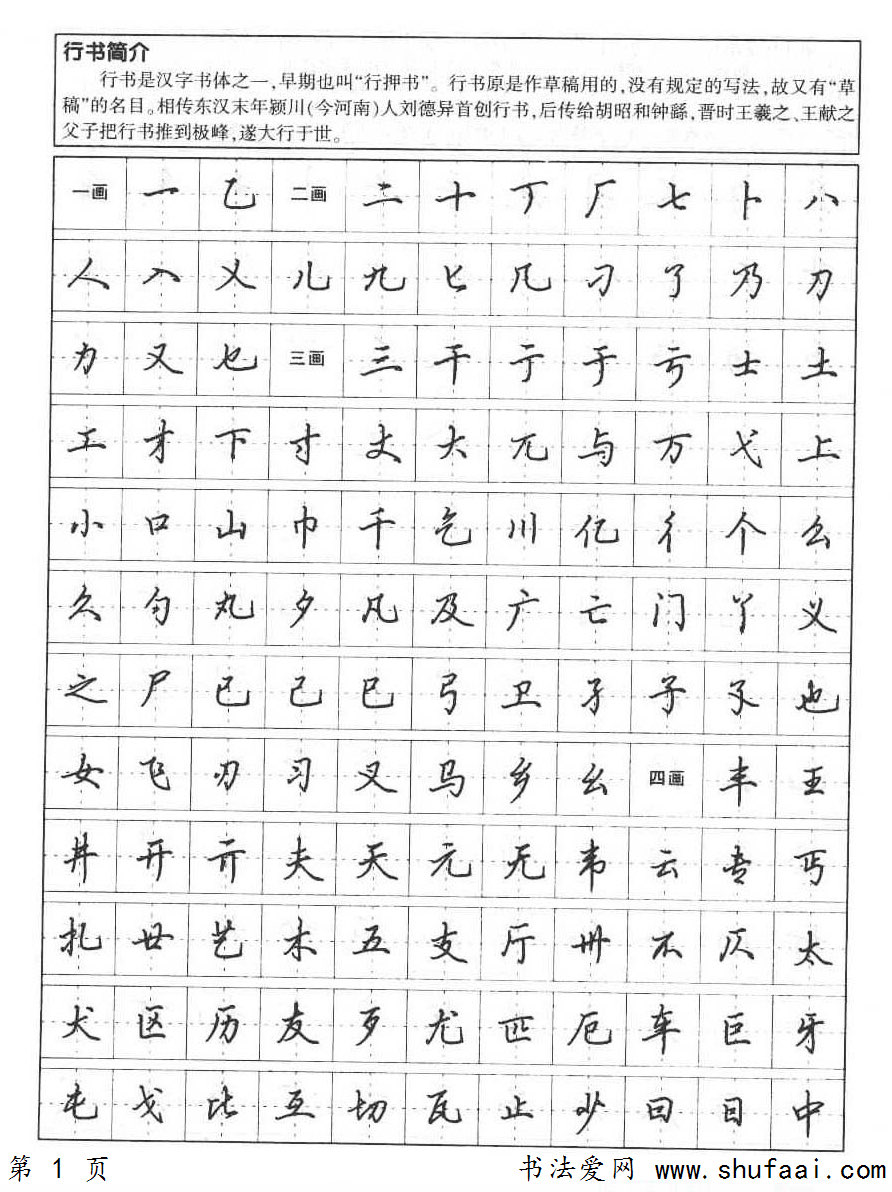 行书简介
行书是汉字书体之一,早期也叫“行押书”。行书原是作草稿用的,没有规定的写法,故又有“草
稿”的名目。相传东汉末年颍川(今河南)人刘德异首创行书,后传给胡昭和钟繇,晋时王羲之、王献之
父子把行书推到极峰,遂大行于世。
一画 一 乙 二画 二 十 丁 厂 七 卜 八
人 入 乂 儿 九 匕 几 刁 了 乃 刀
力 又 乜 三画 三 干 亍 于 亏 士 土
工 才 下 寸 丈 大 兀 与 万 弋 上
小 口 山 巾 千 乞 川 亿 彳 个 么
久 勺 丸 夕 凡 及 广 亡 门 丫 义
之 尸 已 己 巳 弓 卫 孑 子 孓 也
女 飞 刃 习 叉 马 乡 幺 四画 丰 王
井 开 亓 夫 天 元 无 韦 云 专 丐
扎 廿 艺 木 五 支 厅 卅 不 仄 太
犬 区 历 友 歹 尤 匹 厄 车 巨 牙
屯 戈 比 互 切 瓦 止 少 曰 日 中
第 1 页 书法爱网 www.shufaai.com